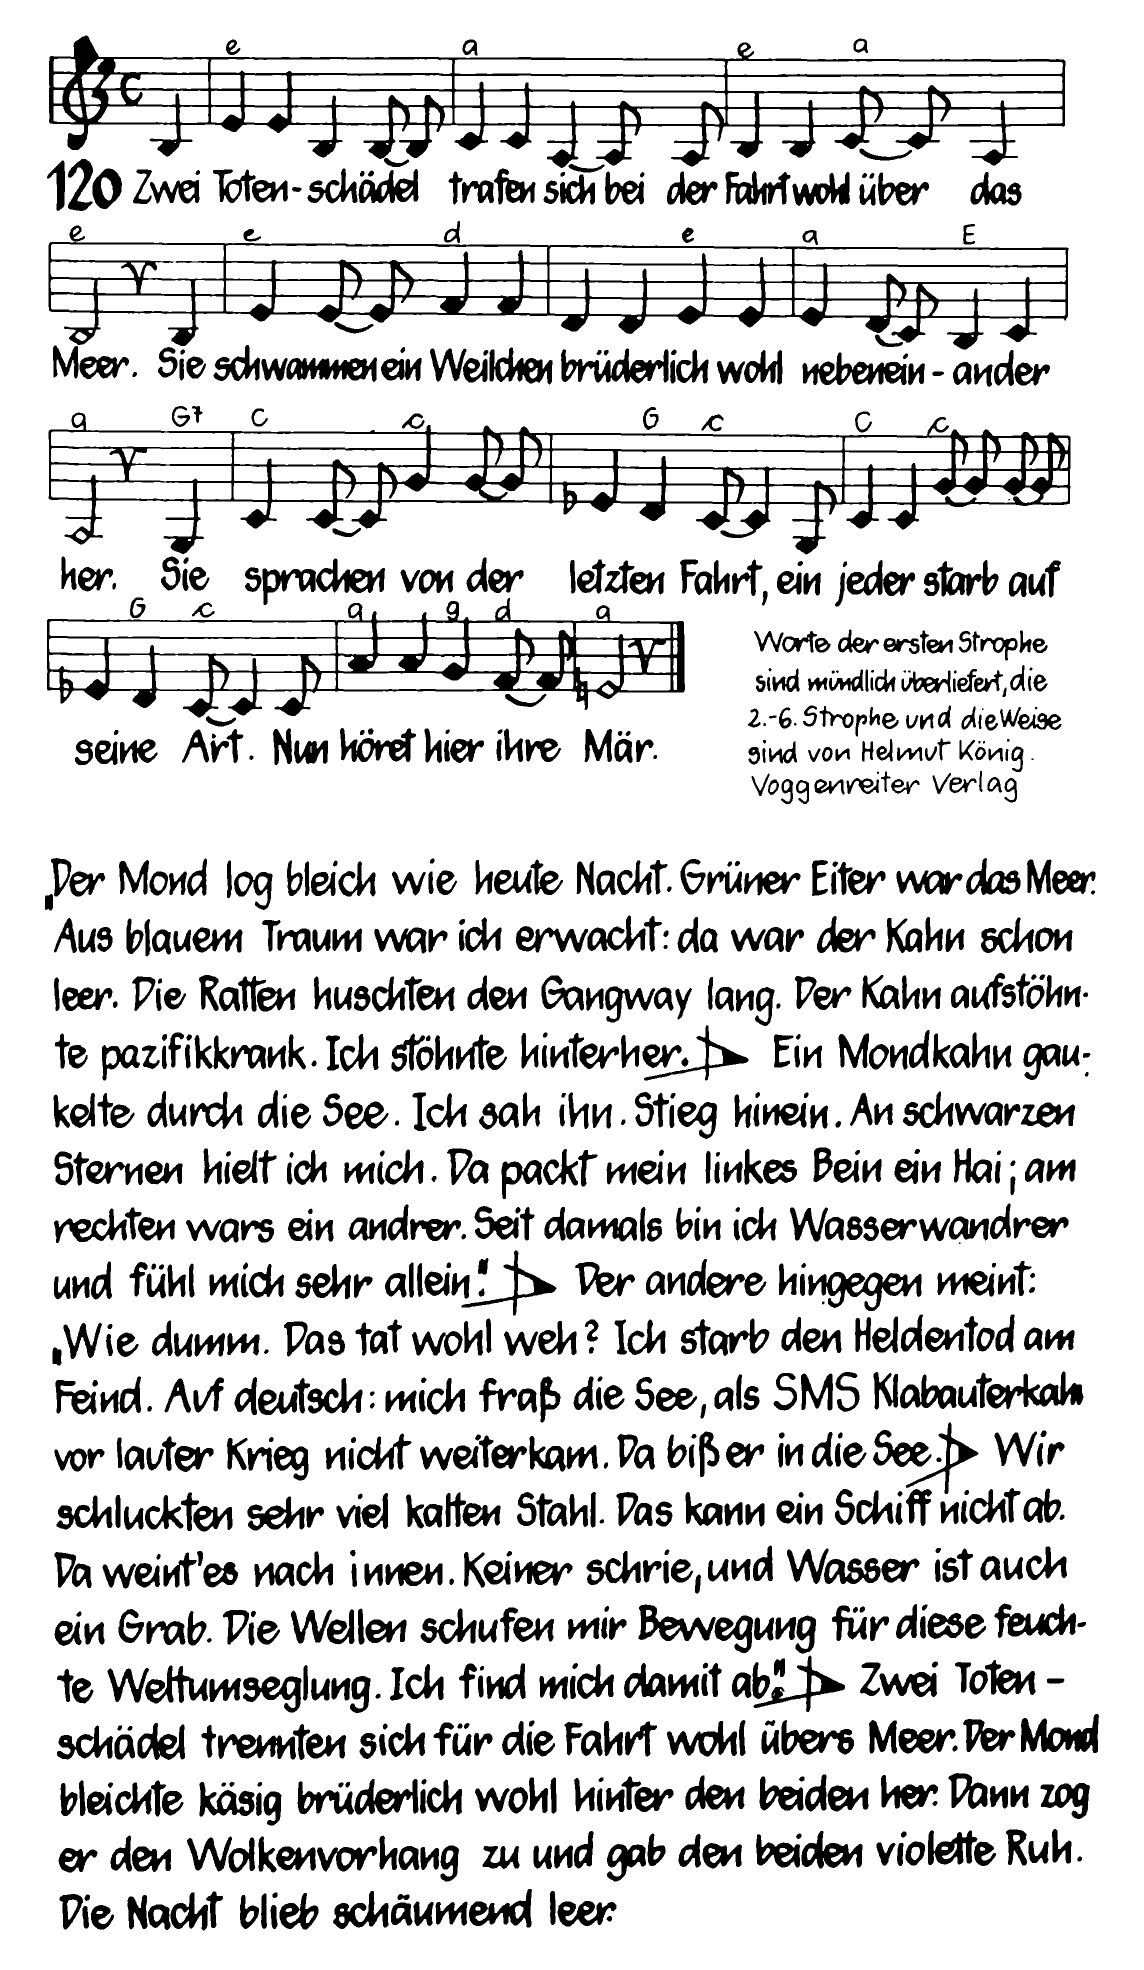 e a e a
120 Zwei Toten-schädel trafen sich bei der Fahrt wohl über das
e e d e a E
Meer. Sie schwammen ein Weilchen brüderlich wohl nebenein-ander
a G7 C c G c C c
her. Sie sprachen von der letzten Fahrt, ein jeder starb auf
G c a g d a
seine Art. Nun höret hier ihre Mär.
Worte der ersten Strophe
sind mündlich überliefert, die
2.-6. Strophe und die Weise
sind von Helmut König.
Voggenreiter Verlag
„Der Mond log bleich wie heute Nacht. Grüner Eiter war das Meer.
Aus blauem Traum war ich erwacht: da war der Kahn schon
leer. Die Ratten huschten den Gangway lang. Der Kahn aufstöhn-
te pazifikkrank. Ich stöhnte hinterher. Ein Mondkahn gau-
kelte durch die See. Ich sah ihn. Stieg hinein. An schwarzen
Sternen hielt ich mich. Da packt mein linkes Bein ein Hai; am
rechten wars ein andrer. Seit damals bin ich Wasserwandrer
und fühl mich sehr allein." Der andere hingegen meint:
„Wie dumm. Das tat wohl weh? Ich starb den Heldentod am
Feind. Auf deutsch: mich fraß die See, als SMS Klabauterkahn
vor lauter Krieg nicht weiterkam. Da biß er in die See. Wir
schluckten sehr viel kalten Stahl. Das kann ein Schiff nicht ab.
Da weint'es nach innen. Keiner schrie, und Wasser ist auch
ein Grab. Die Wellen schufen mir Bewegung für diese feuch-
te Weltumseglung. Ich find mich damit ab." Zwei Toten-
schädel trennten sich für die Fahrt wohl übers Meer. Der Mond
bleichte käsig brüderlich wohl hinter den beiden her. Dann zog
er den Wolkenvorhang zu und gab den beiden violette Ruh.
Die Nacht blieb schäumend leer.